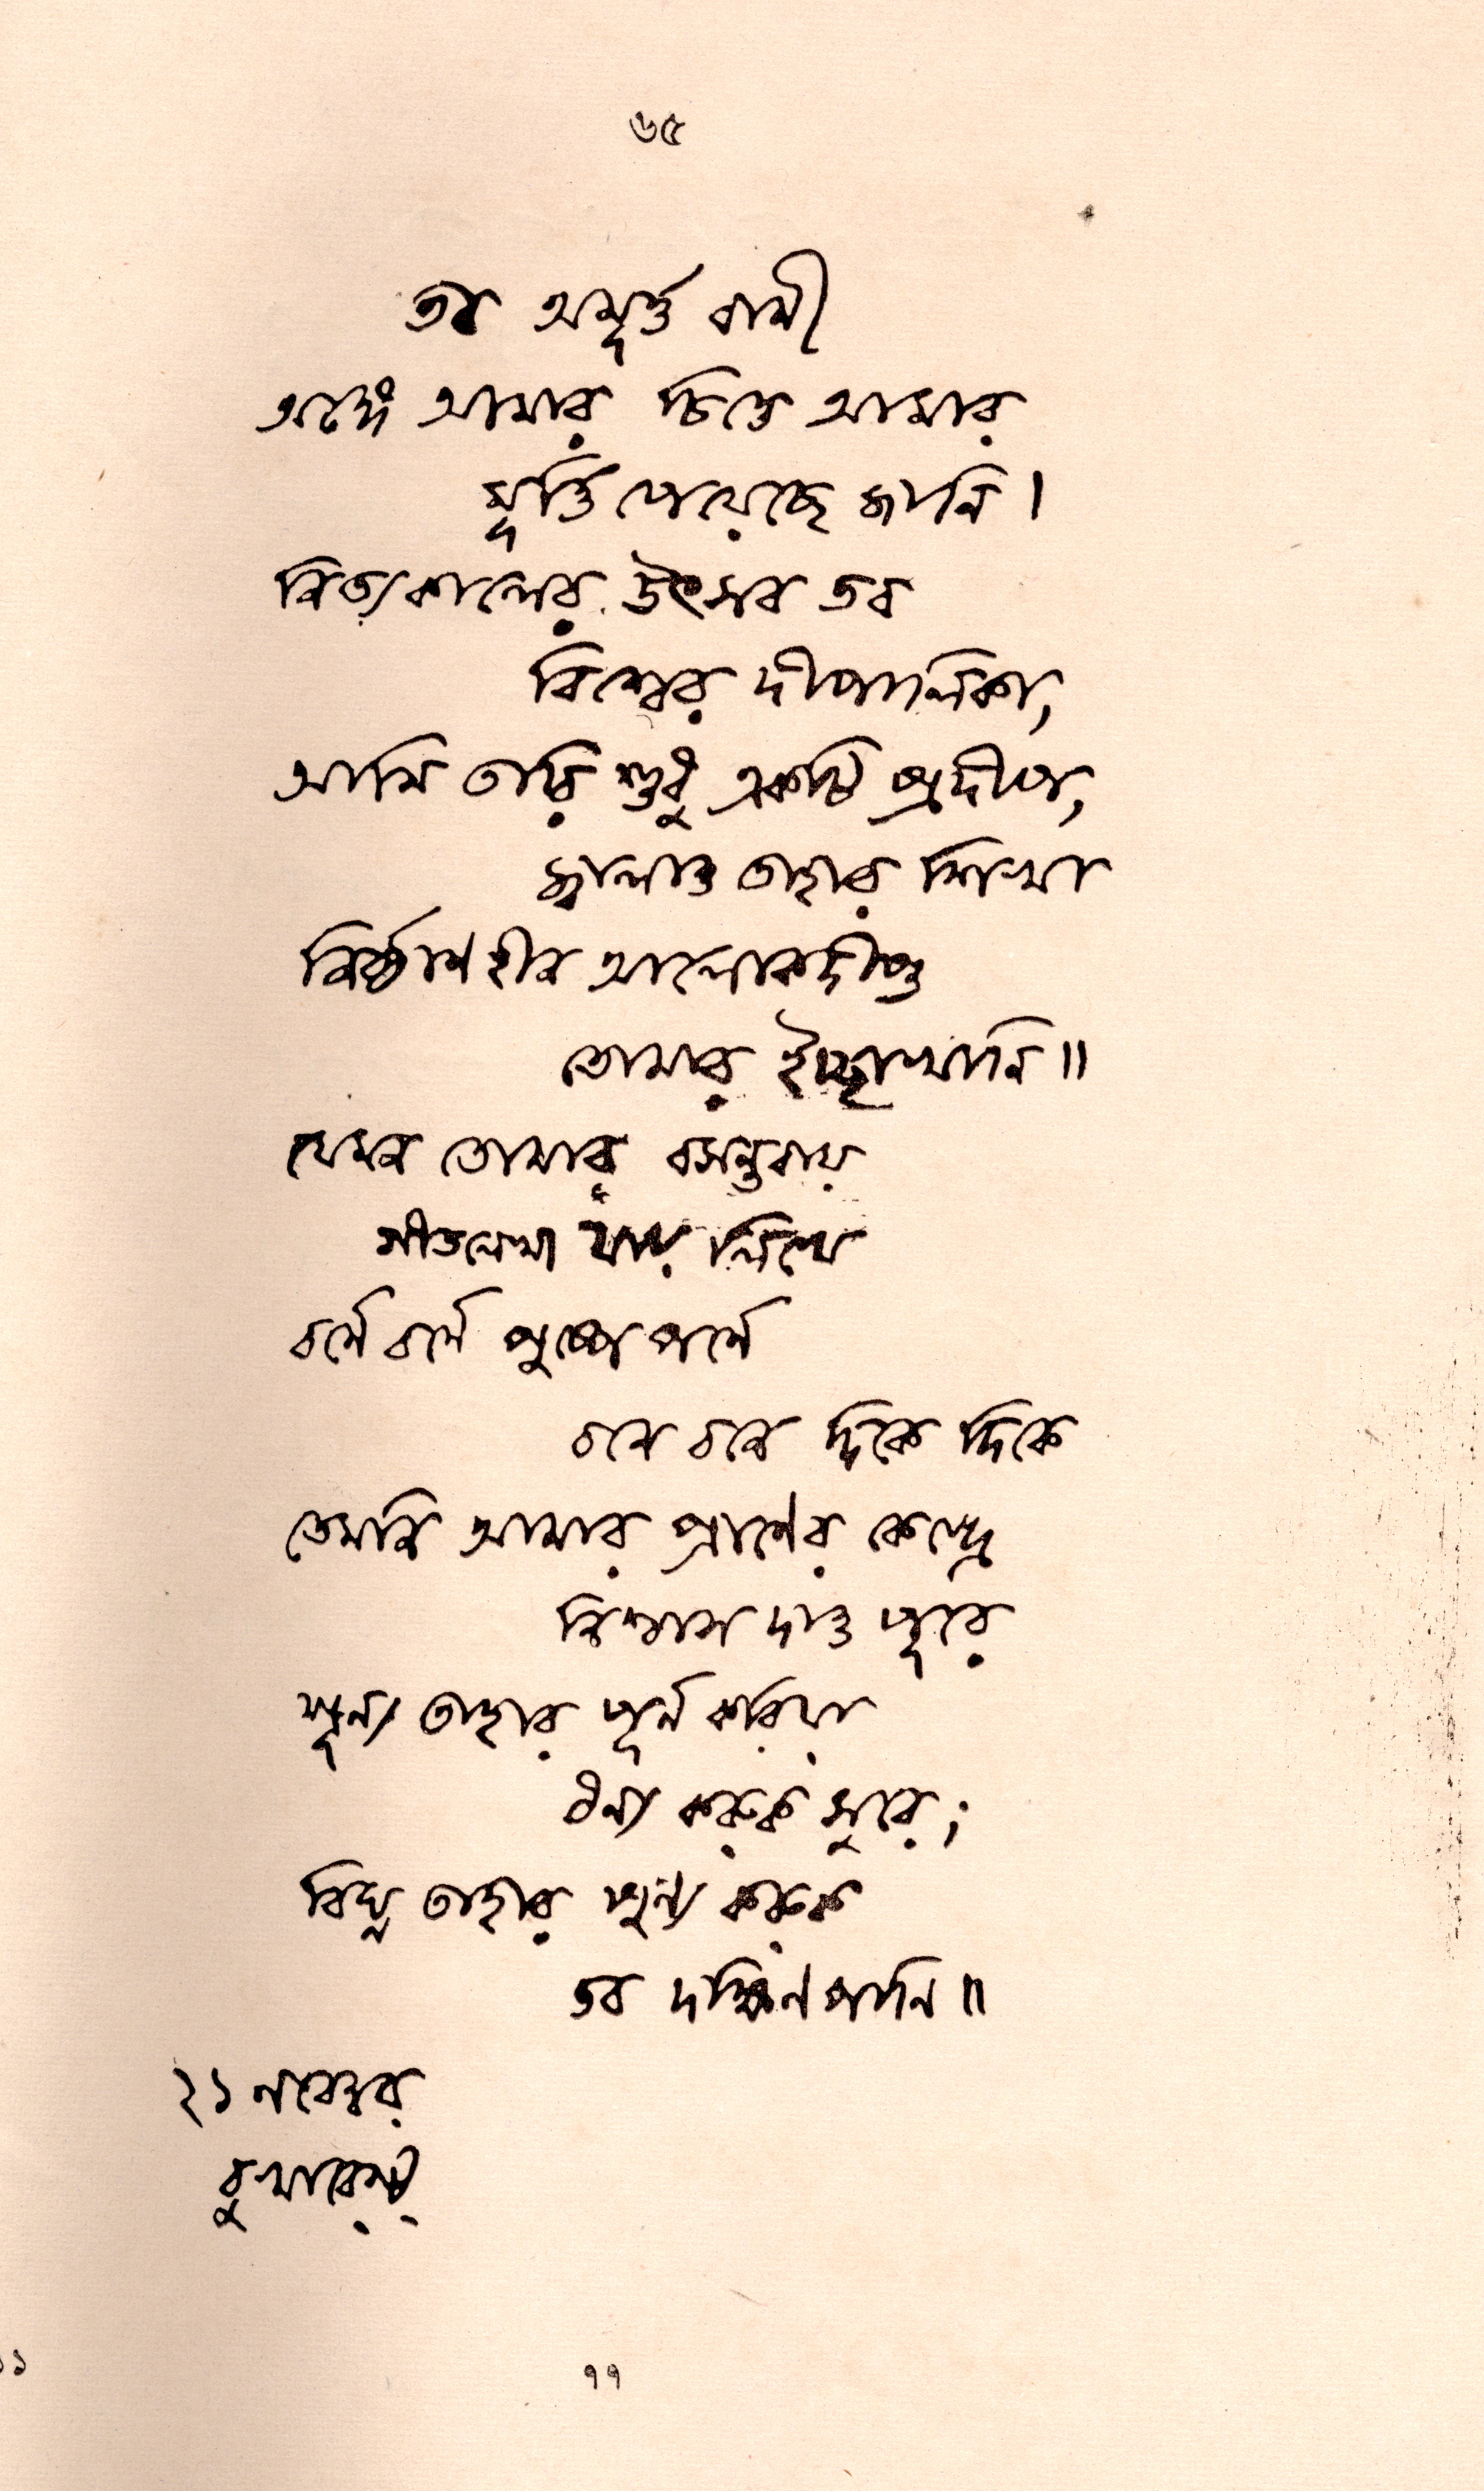 ৬৫
তব অমূর্ত্ত বাণী
অঙ্গে আমার চিত্তে আমার
মূর্ত্তি পেয়েছে জানি।
নিত্যকালের উৎসব তব
বিশ্বের দীপালিকা,
আমি তারি শুধু একটি প্রদীপ,
জ্বালাও তাহার শিখা
নির্ব্বাণহীন আলোকদীপ্ত
তোমার ইচ্ছাখানি॥
যেমন তোমার বসন্তবায়
গীতলেখা যায় লিখে
বর্ণে বর্ণে পুষ্পে পর্ণে
বনে বনে দিকে দিকে
তেমনি আমার প্রাণের কেন্দ্রে
নিশ্বাস দাও পূরে
শূন্য তাহার পূর্ণ করিয়া
ধন্য করুক সুরে;
বিঘ্ন তাহার পুণ্য করুক
তব দক্ষিণপাণি॥
২১ নবেম্বর
বুখারেস্ট্
৭৭